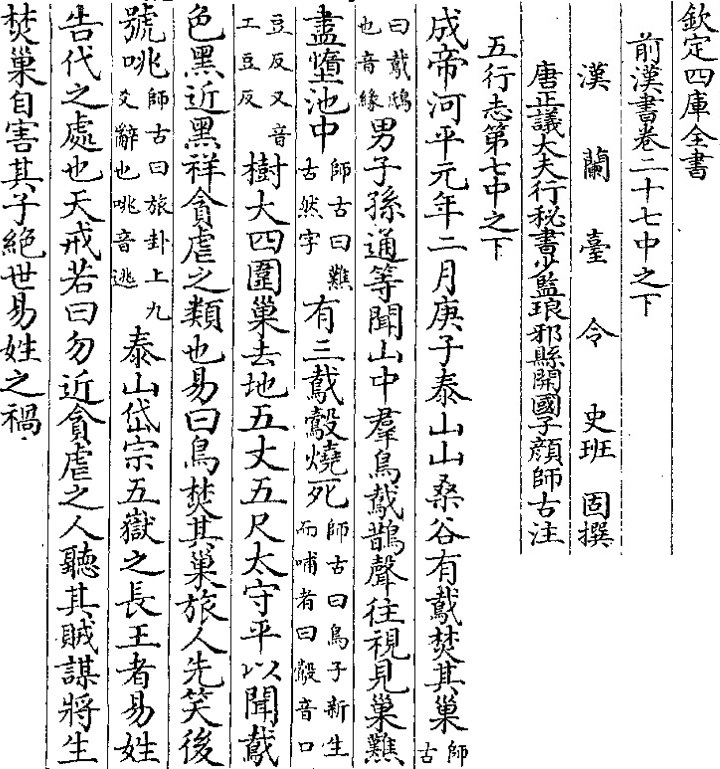 欽定四庫全書
前漢書卷二十七中之下
漢蘭臺令史班固撰
唐正議大夫行秘書少監琅邪縣開國子顏師古注
五行志第七中之下
成帝河平元年二月庚子泰山山桑谷有䳒焚其巢師古
曰䳒鴟也音緣男子孫通等聞山中羣鳥䳒鵲聲往視見巢難
盡墮池中師古曰難古然字有三䳒鷇燒死師古曰鳥子新生而哺者曰鷇音口
豆反又音工豆反樹大四圍巢去地五丈五尺太守平以聞䳒
色黑近黑祥貪虐之類也易曰鳥焚其巢旅人先笑後
號咷師古曰旅卦上九爻辭也咷音逃泰山岱宗五嶽之長王者易姓
告代之處也天戒若曰勿近貪虐之人聽其賊謀將生
焚巢自害其子絶世易姓之禍